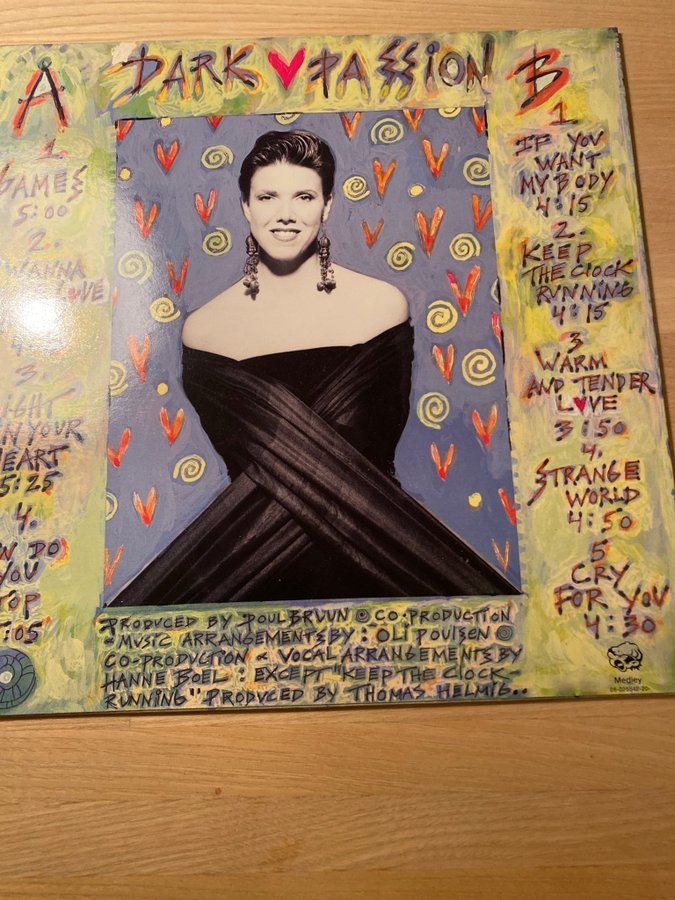 A
DARK PASSION
B
1.
GAMES
5:00
2.
WANNA
LOVE
3.
YOUR
5:25
4.
DO
YOU
:05
1
IF YOU
WANT
MY BODY
4:15
2.
KEEP
THE CLOCK
RUNNING
4:15
3
WARM
AND TENDER
LOVE
3:50
4.
STRANGE
WORLD
4:50
5
CRY
FOR YOU
4:30
PRODUCED BY POUL BRUUN © CO-PRODUCTION
MUSIC ARRANGEMENTS BY: OLI POULSEN ©
CO-PRODUCTION & VOCAL ARRANGEMENTS BY
HANNE BOEL : EXCEPT "KEEP THE CLOCK
RUNNING" PRODUCED BY THOMAS HELMIG..
Medley